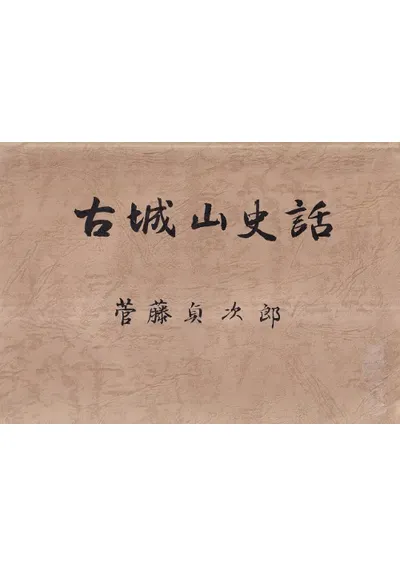 古城山史話
菅藤貞次郎